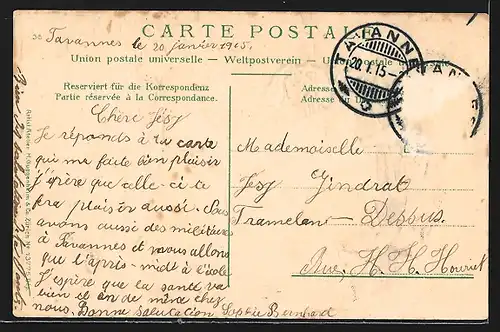 CARTE POSTALE
Tavannes le 20 janvier 1915.
Union postale universelle — Weltpostverein — Union postale
Reserviert für die Korrespondenz
Partie réservée à la Correspondance.
Adresse
Adresse
TAVANNES
20.I.15-
TAVANNES
Chère Jésy
Je réponds à la carte
qui ma faite bien plaisir
j'éspère que celle-ci te
fera plaisir aussi.
avons aussi des militaires
à Tavannes et nous allons
que l'après-midt à l'école
J'éspère que la santé va
bien il en de même chez
nous. Bonne salutation Sophie Bernhard
Mademoiselle
Jésy Jindrat
Tramelan-Dessus.
Rue, H. H. Houriet